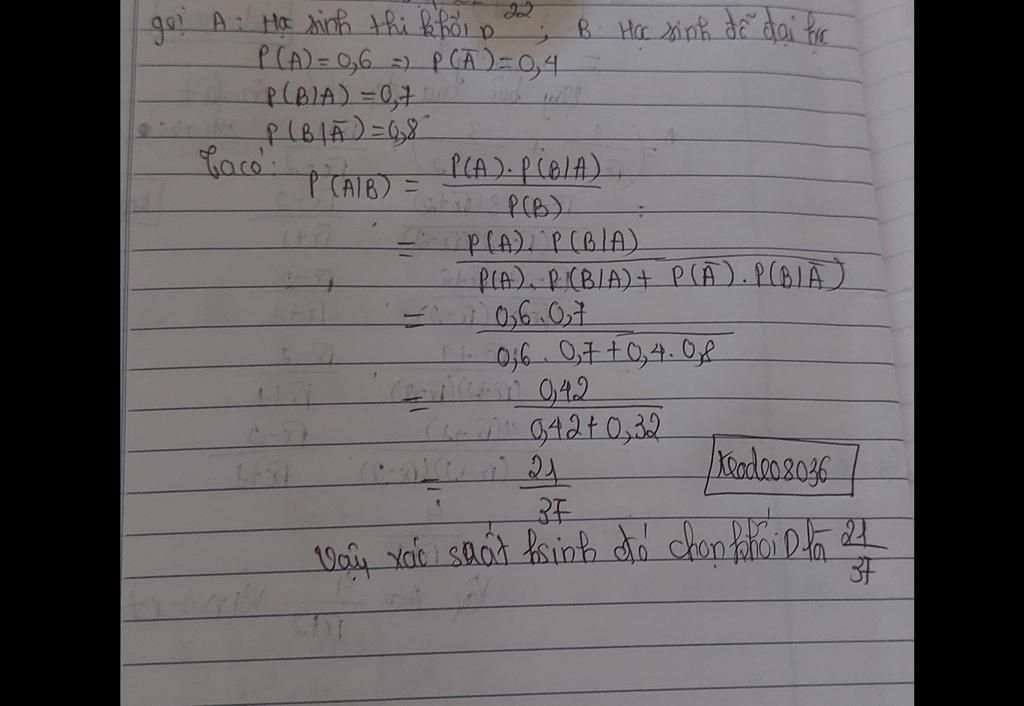 22
gọi A: Học sinh thi khối D ; B: Học sinh đỗ đại học
P(A) = 0,6 => P(Ā) = 0,4
P(B/A) = 0,7
P(B/Ā) = 0,8
Ta có:
P(A/B) = P(A).P(B/A) / P(B)
= P(A).P(B/A) / P(A).P(B/A) + P(Ā).P(B/Ā)
= 0,6.0,7 / 0,6.0,7 + 0,4.0,8
= 0,42 / 0,42 + 0,32
= 21 / 37
keodeo8036
Vậy xác suất hsinh đó chọn khối D là 21 / 37